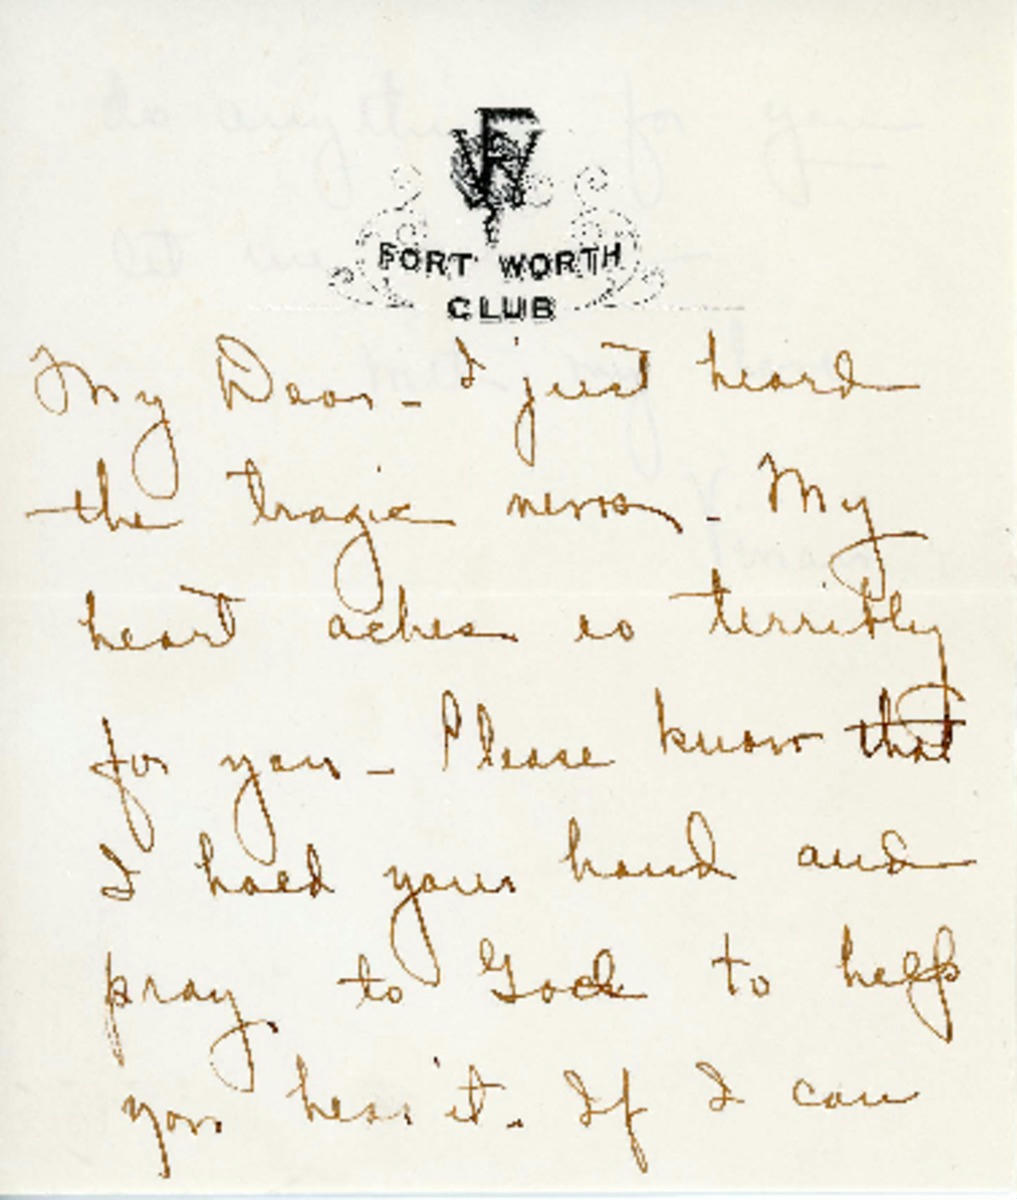 FW
FORT WORTH
CLUB
My Dear - I just heard
the tragic news - My
heart aches so terribly
for you - Please know that
I hold your hand and
pray to God to help
you bear it. If I can